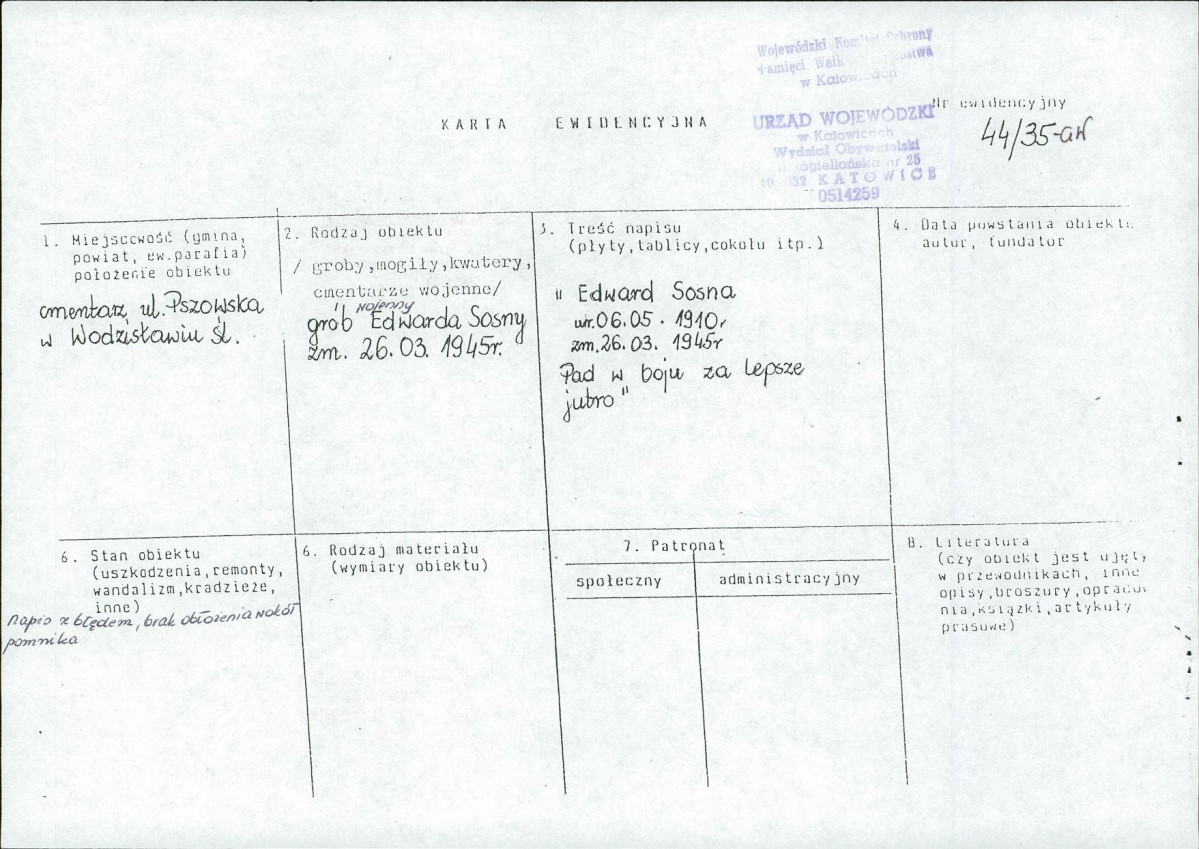 Wojewódzki Komitet Ochrony
Pamięci Walk
w Katowicach
KARTA EWIDENCYJNA
URZĄD WOJEWÓDZKI
w Katowicach
Wydział Obywatelski
Jagiellońska nr 25
032 KATOWICE
0514259
Nr ewidencyjny
44/35-GW
1. Miejscowość (gmina,
powiat, ew.parafia)
położenie obiektu
cmentarz ul. Pszowska
w Wodzisławiu Śl.
2. Rodzaj obiektu
/ groby,mogiły,kwatery,
cmentarze wojenne/
wojenny
grób Edwarda Sosny
zm. 26.03. 1945r.
3. Treść napisu
(płyty,tablicy,cokołu itp.)
" Edward Sosna
ur. 06.05. 1910r
zm. 26.03. 1945r
Pad w boju za lepsze
jutro"
4. Data powstania obiektu
autor, fundator
6. Stan obiektu
(uszkodzenia,remonty,
wandalizm,kradzieże,
inne)
napis z błędem, brak obłożenia wokół
pomnika
6. Rodzaj materiału
(wymiary obiektu)
7. Patronat
społeczny
administracyjny
8. Literatura
(czy obiekt jest ujęty
w przewodnikach, inne
opisy,broszury,
nia,książki,artykuły
prasowe)